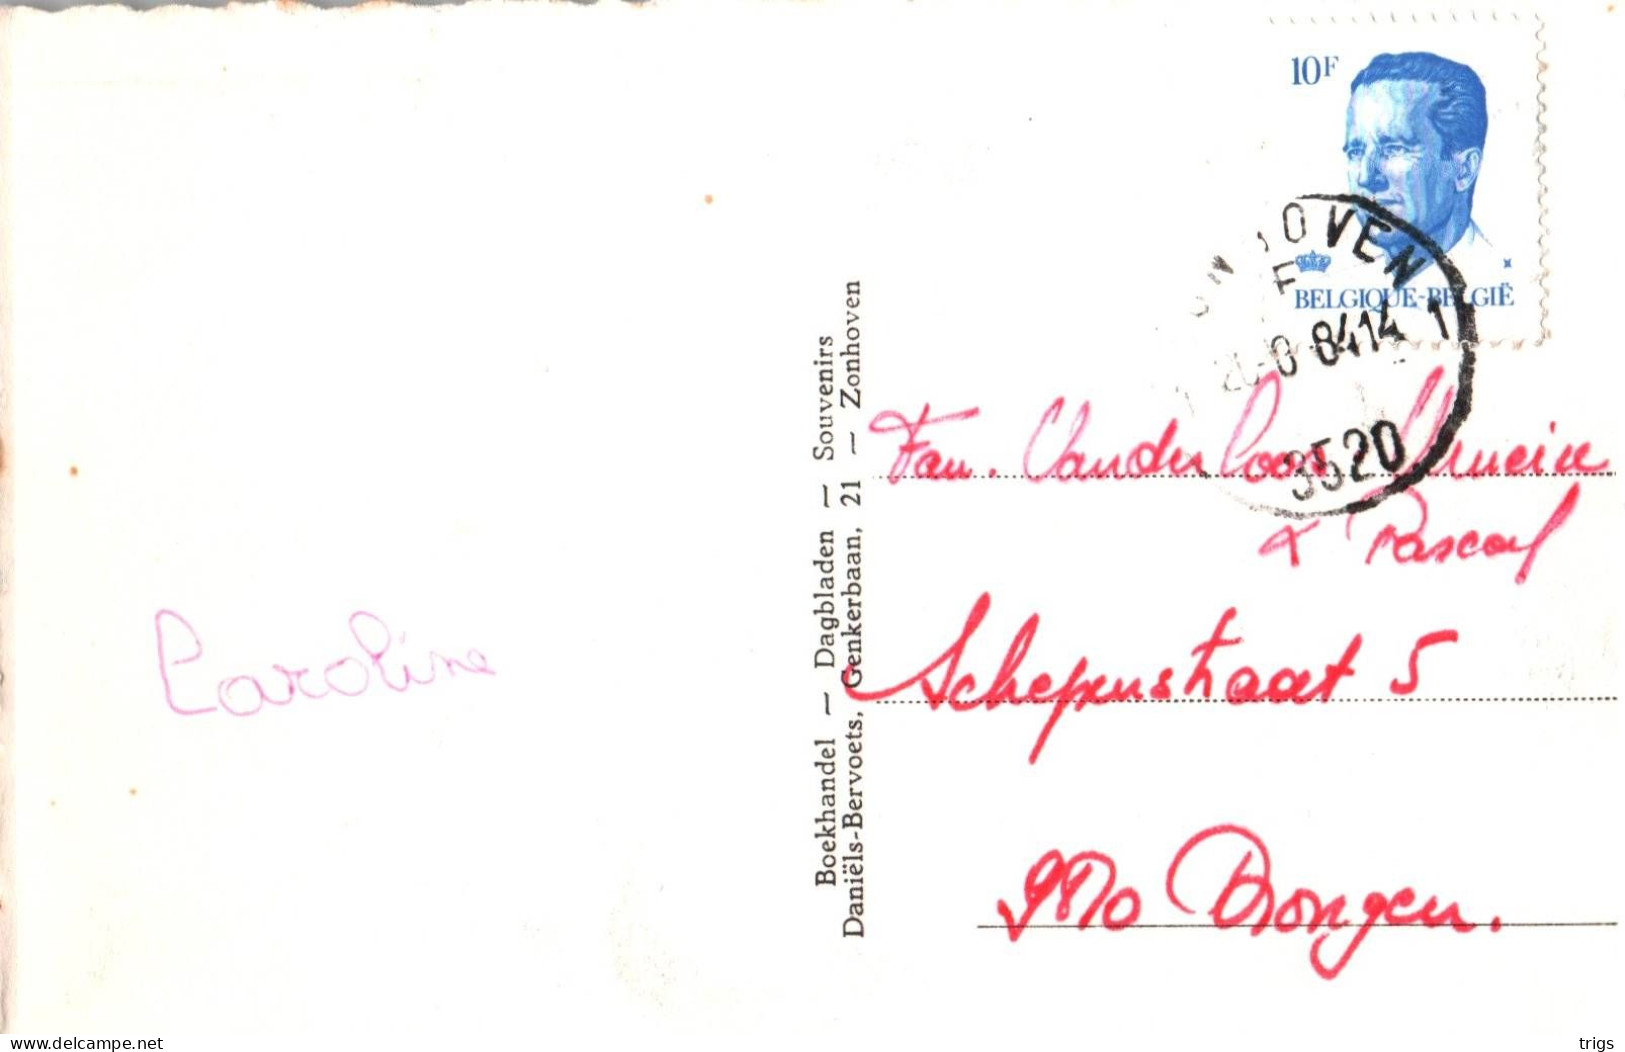 10F
BELGIQUE-BELGIË
3520
Boekhandel — Dagbladen — Souvenirs
Daniëls-Bervoets, Genkerbaan, 21 — Zonhoven
Fam. Vander Loos
& Pascal
Schepenstraat 5
Drongen.
Caroline
delcampe.net
trigs